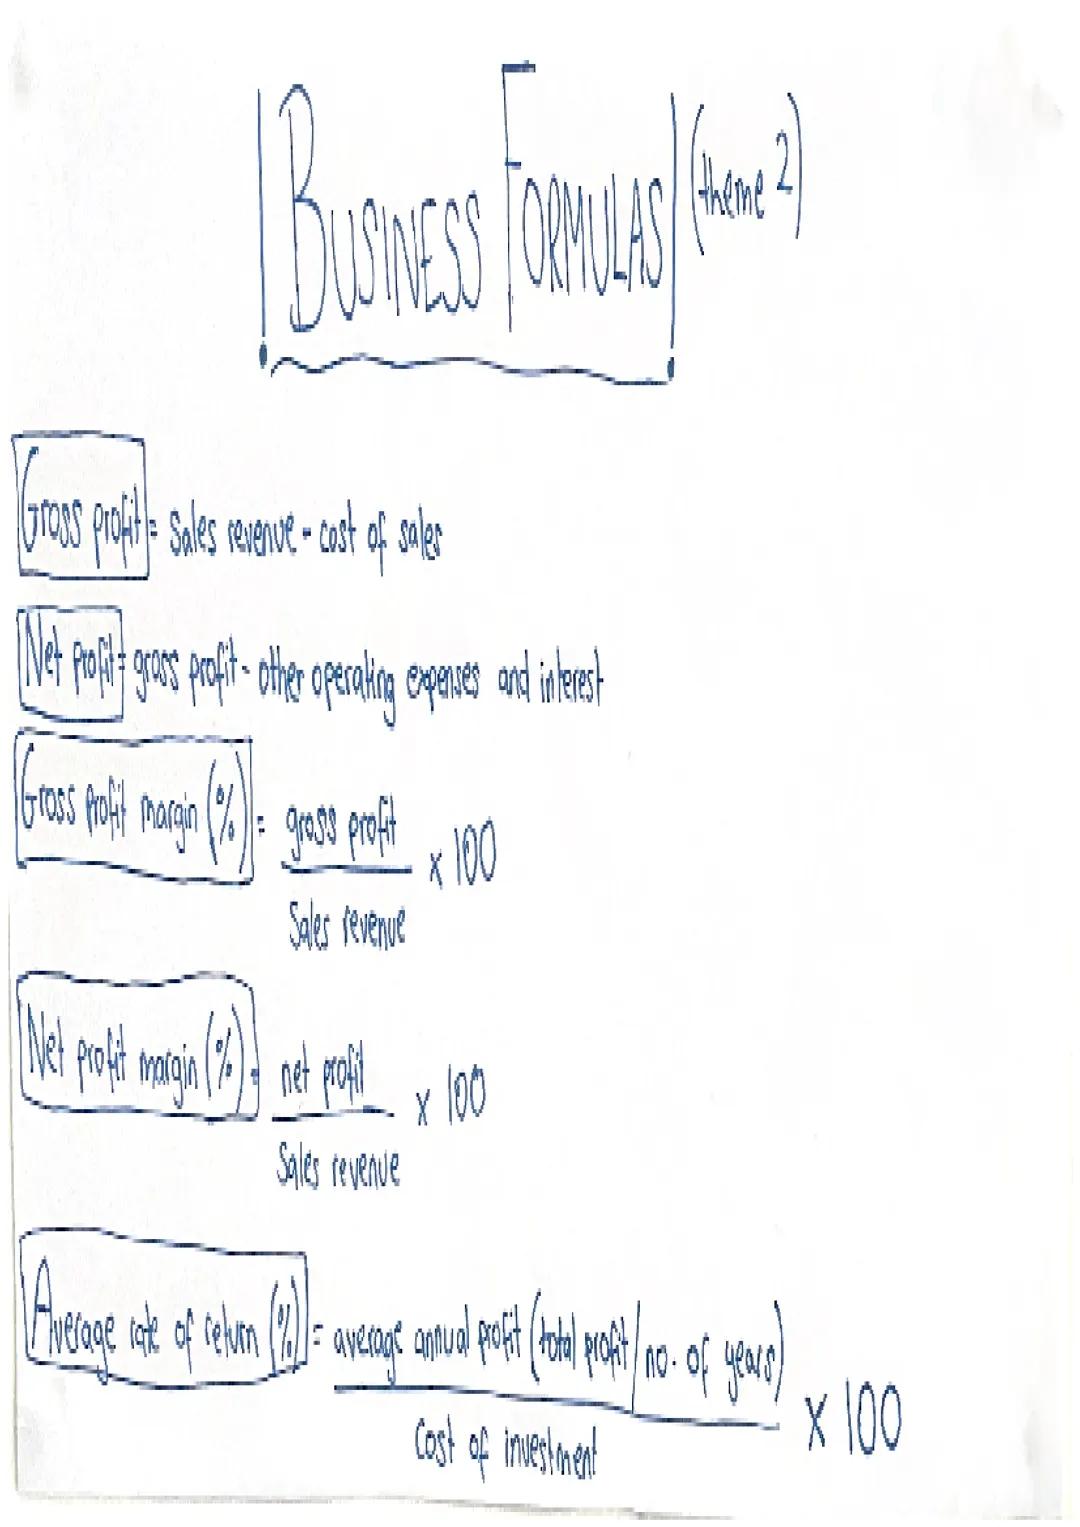 BUSINESS FORMULAS (theme 2)
Gross profit = Sales revenue - cost of sales
Net profit = gross profit - other operating expenses and interest
Gross Profit margin (%) = gross profit
x 100
Sales revenue
Net profit margin (%) = net profit
x 100
Sales revenue
Average rate of return (%) = average annual profit (total profit / no. of years)
x 100
Cost of investment